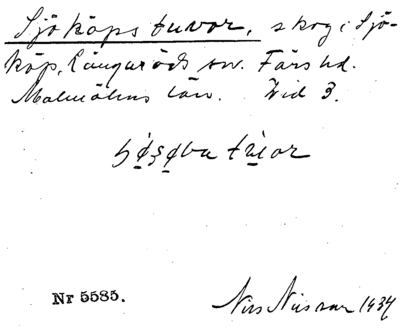 Sjököps tuvor, skog i Sjö-
köp, Långaröds sn. Färs hd.
Malmöhus län. Wid 3.
Nr 5585.
Nils Nilsson 1934